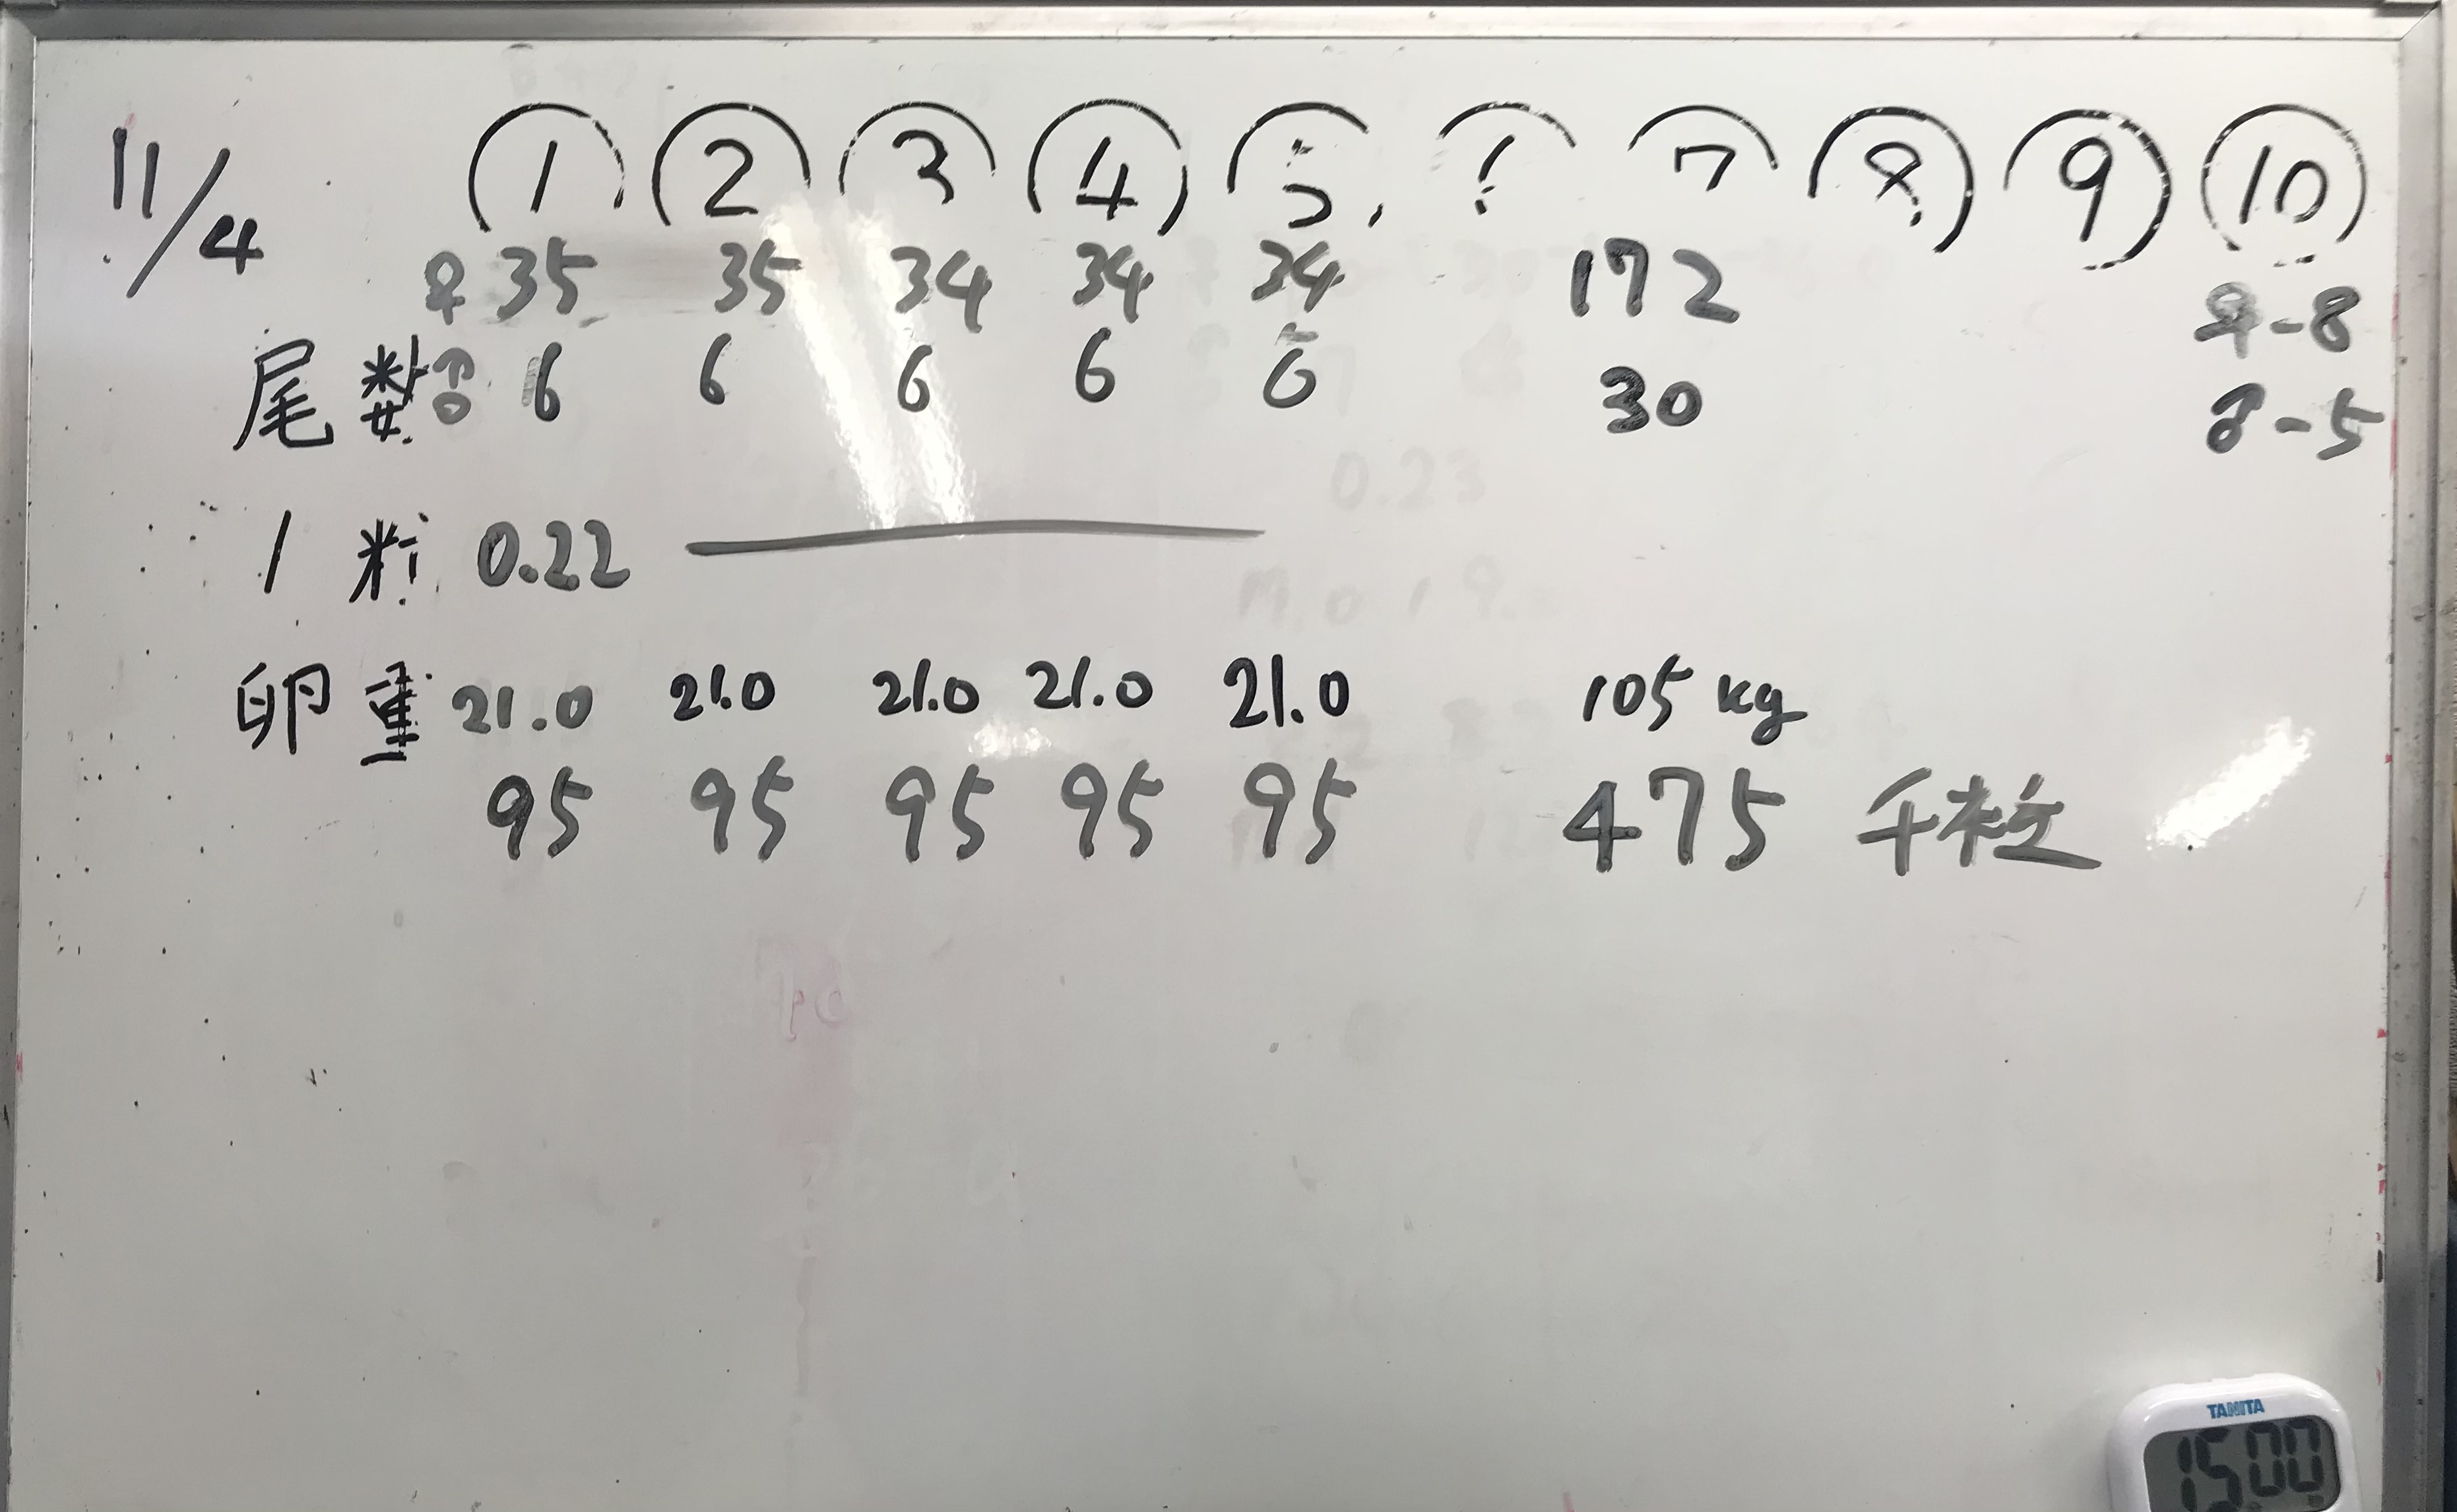 11/4 ① ② ③ ④ ⑤ ⑦ ⑧ ⑨ ⑩
♀ 35 35 34 34 34 172 ♀-8
尾数 ♂ 6 6 6 6 6 30 ♂-5
1粒 0.22
卵重 21.0 21.0 21.0 21.0 21.0 105 kg
95 95 95 95 95 475 千粒
TANITA
15:00